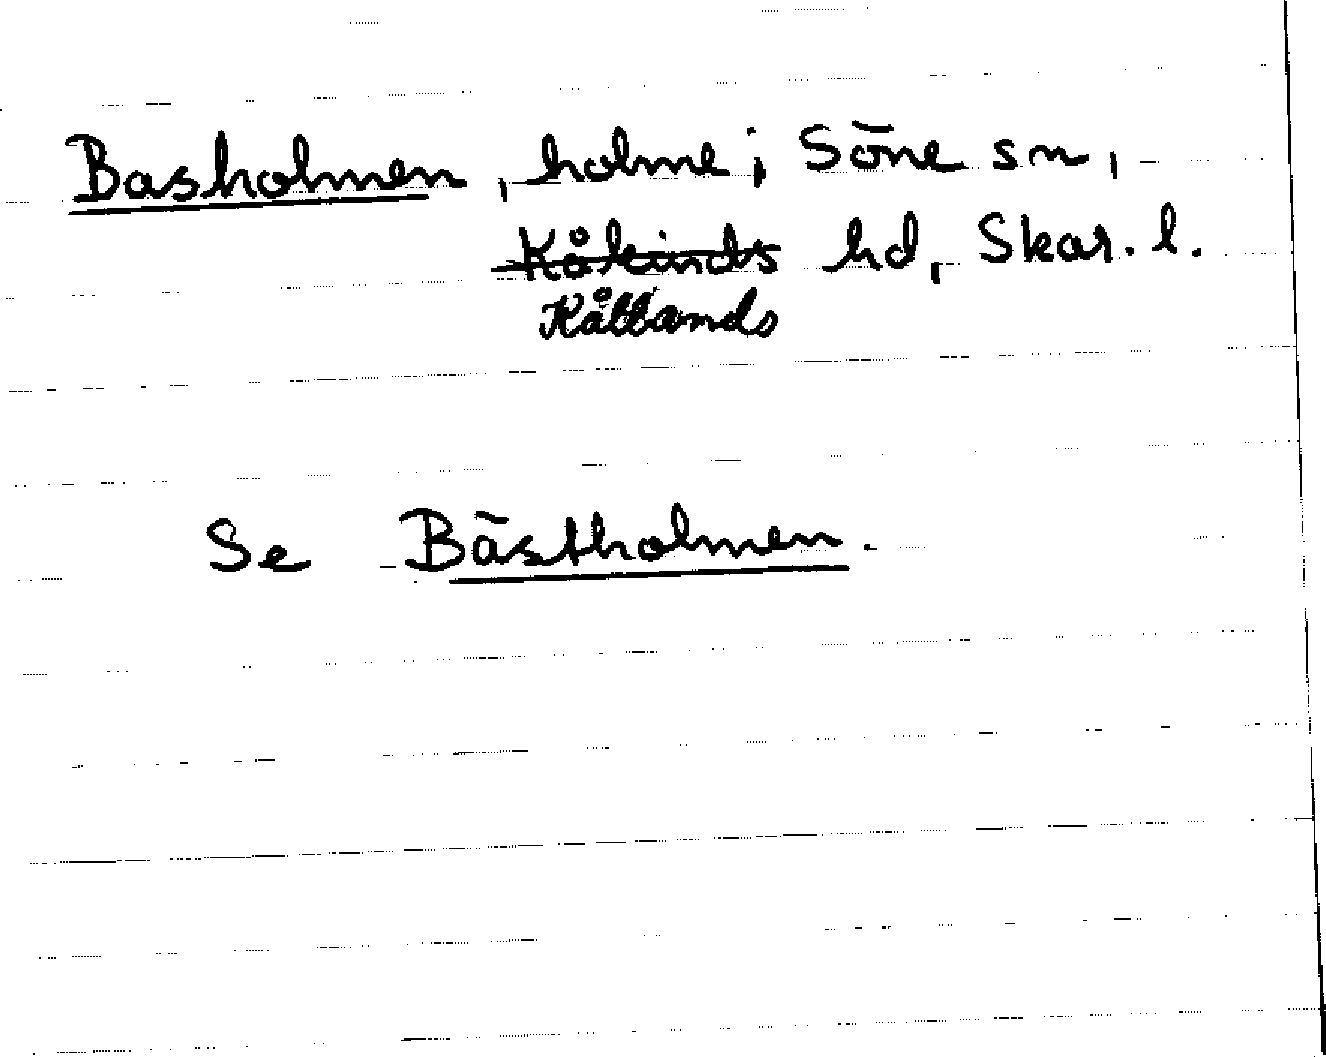 Basholmen, holme; Söne sn,
Kåkinds hd, Skar. l.
Kållands
Se Bästholmen.